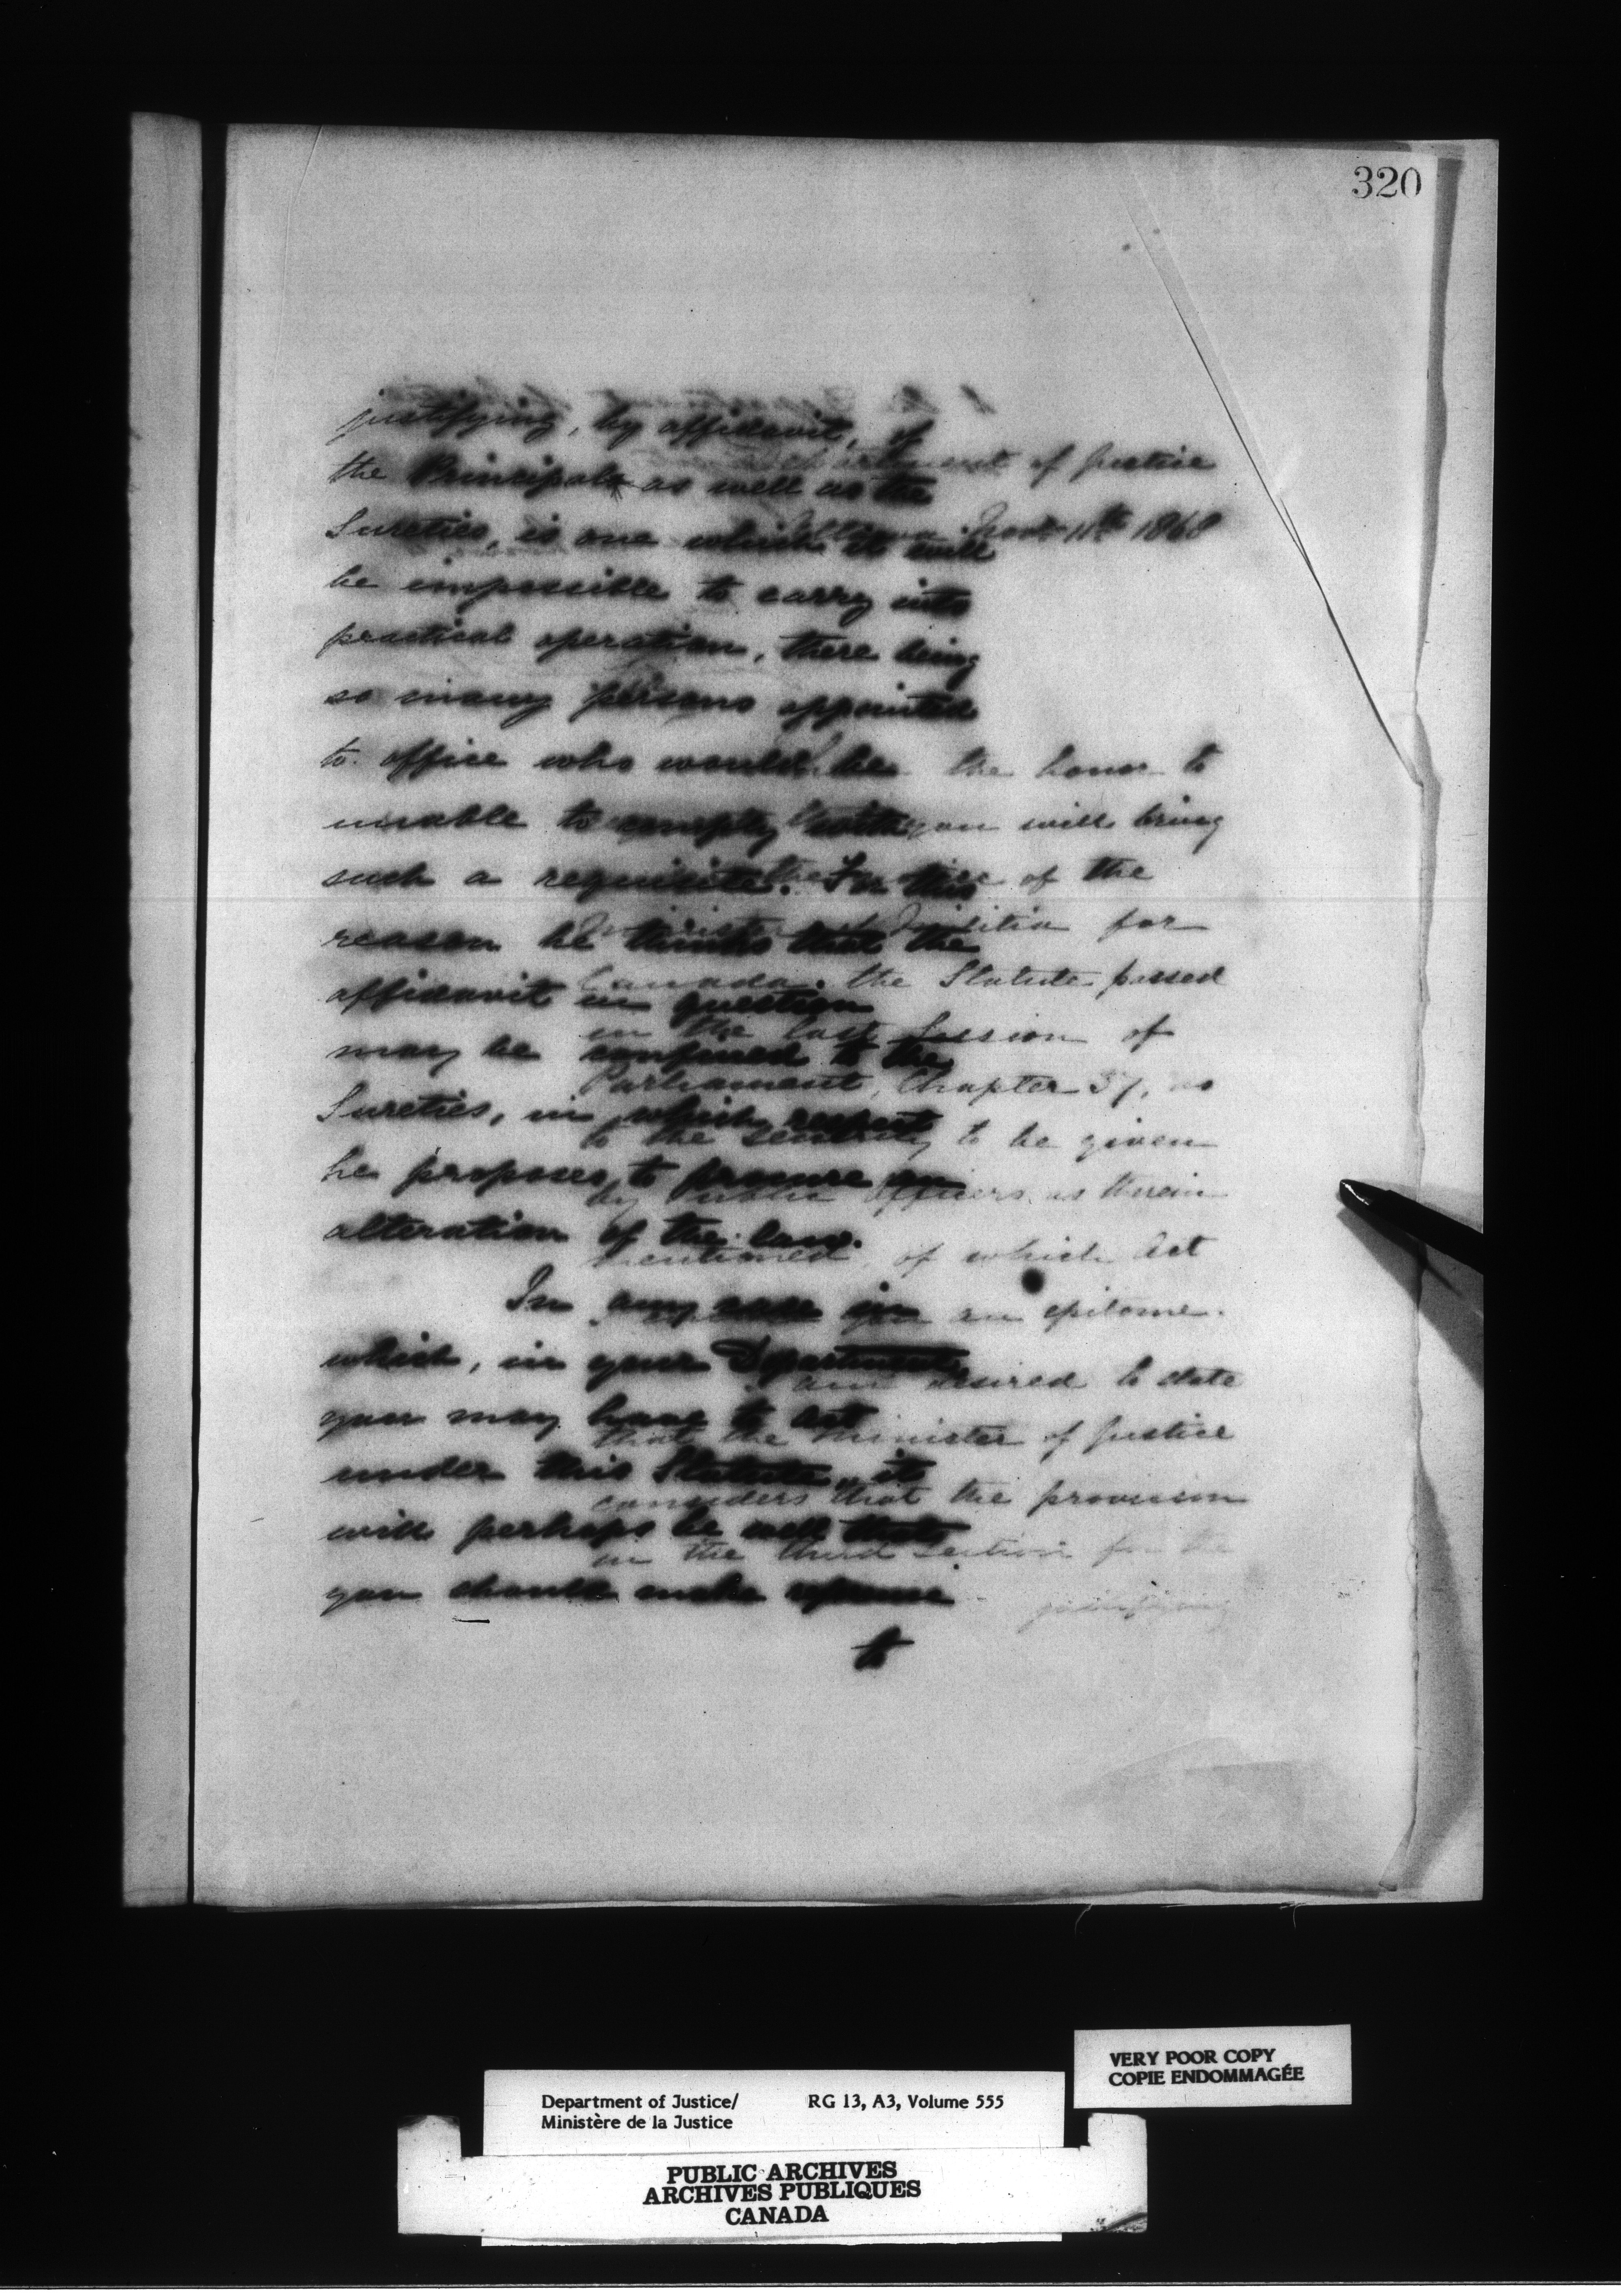 320
justifying, by affidavit, of
the Principals as well as the
Sureties, is one which it will
be impossible to carry into
practical operation, there being
so many persons appointed
to office who would be
unable to comply with
such a requisite. For this
reason he thinks that the
affidavit in question
may be confined to the
Sureties, in which respect
he proposes to procure an
alteration of the law.
In any case in
which, in your Department,
you may have to act
under this Statute, it
will perhaps be well that
you should make
to
of Justice
Nov 11th 1868
the honor to
you will bring
the notice of the
Militia for
Canada. the Statute passed
in the last Session of
Parliament, Chapter 37, as
to the security to be given
by Public Officers as therein
mentioned, of which Act
an epitome.
I am desired to state
that the Minister of Justice
considers that the provision
in the third section for the
justifying
VERY POOR COPY
COPIE ENDOMMAGÉE
Department of Justice/ RG 13, A3, Volume 555
Ministère de la Justice
PUBLIC ARCHIVES
ARCHIVES PUBLIQUES
CANADA